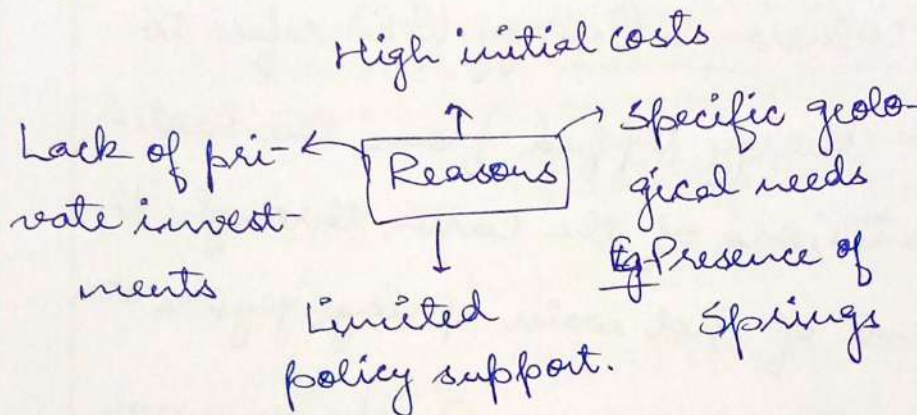 High initial costs
Lack of pri-
vate invest-
ments
Reasons
Specific geolo-
gical needs
Eg Presence of
Springs
Limited
policy support.